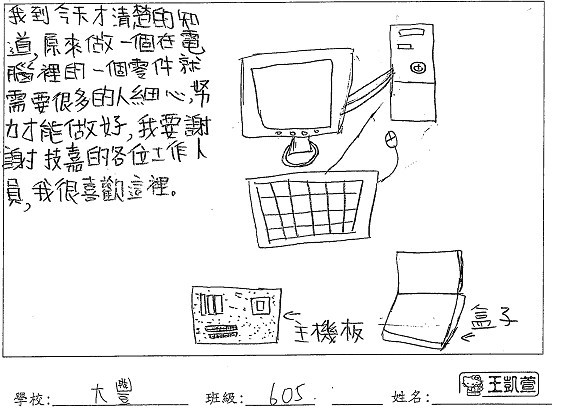 我到今天才清楚的知
道,原來做一個在電
腦裡的一個零件就
需要很多的人細心,努
力才能做好,我要謝
謝技嘉的各位工作人
員,我很喜歡這裡。
主機板
盒子
學校: 大豐 班級: 605 姓名: 王凱萱